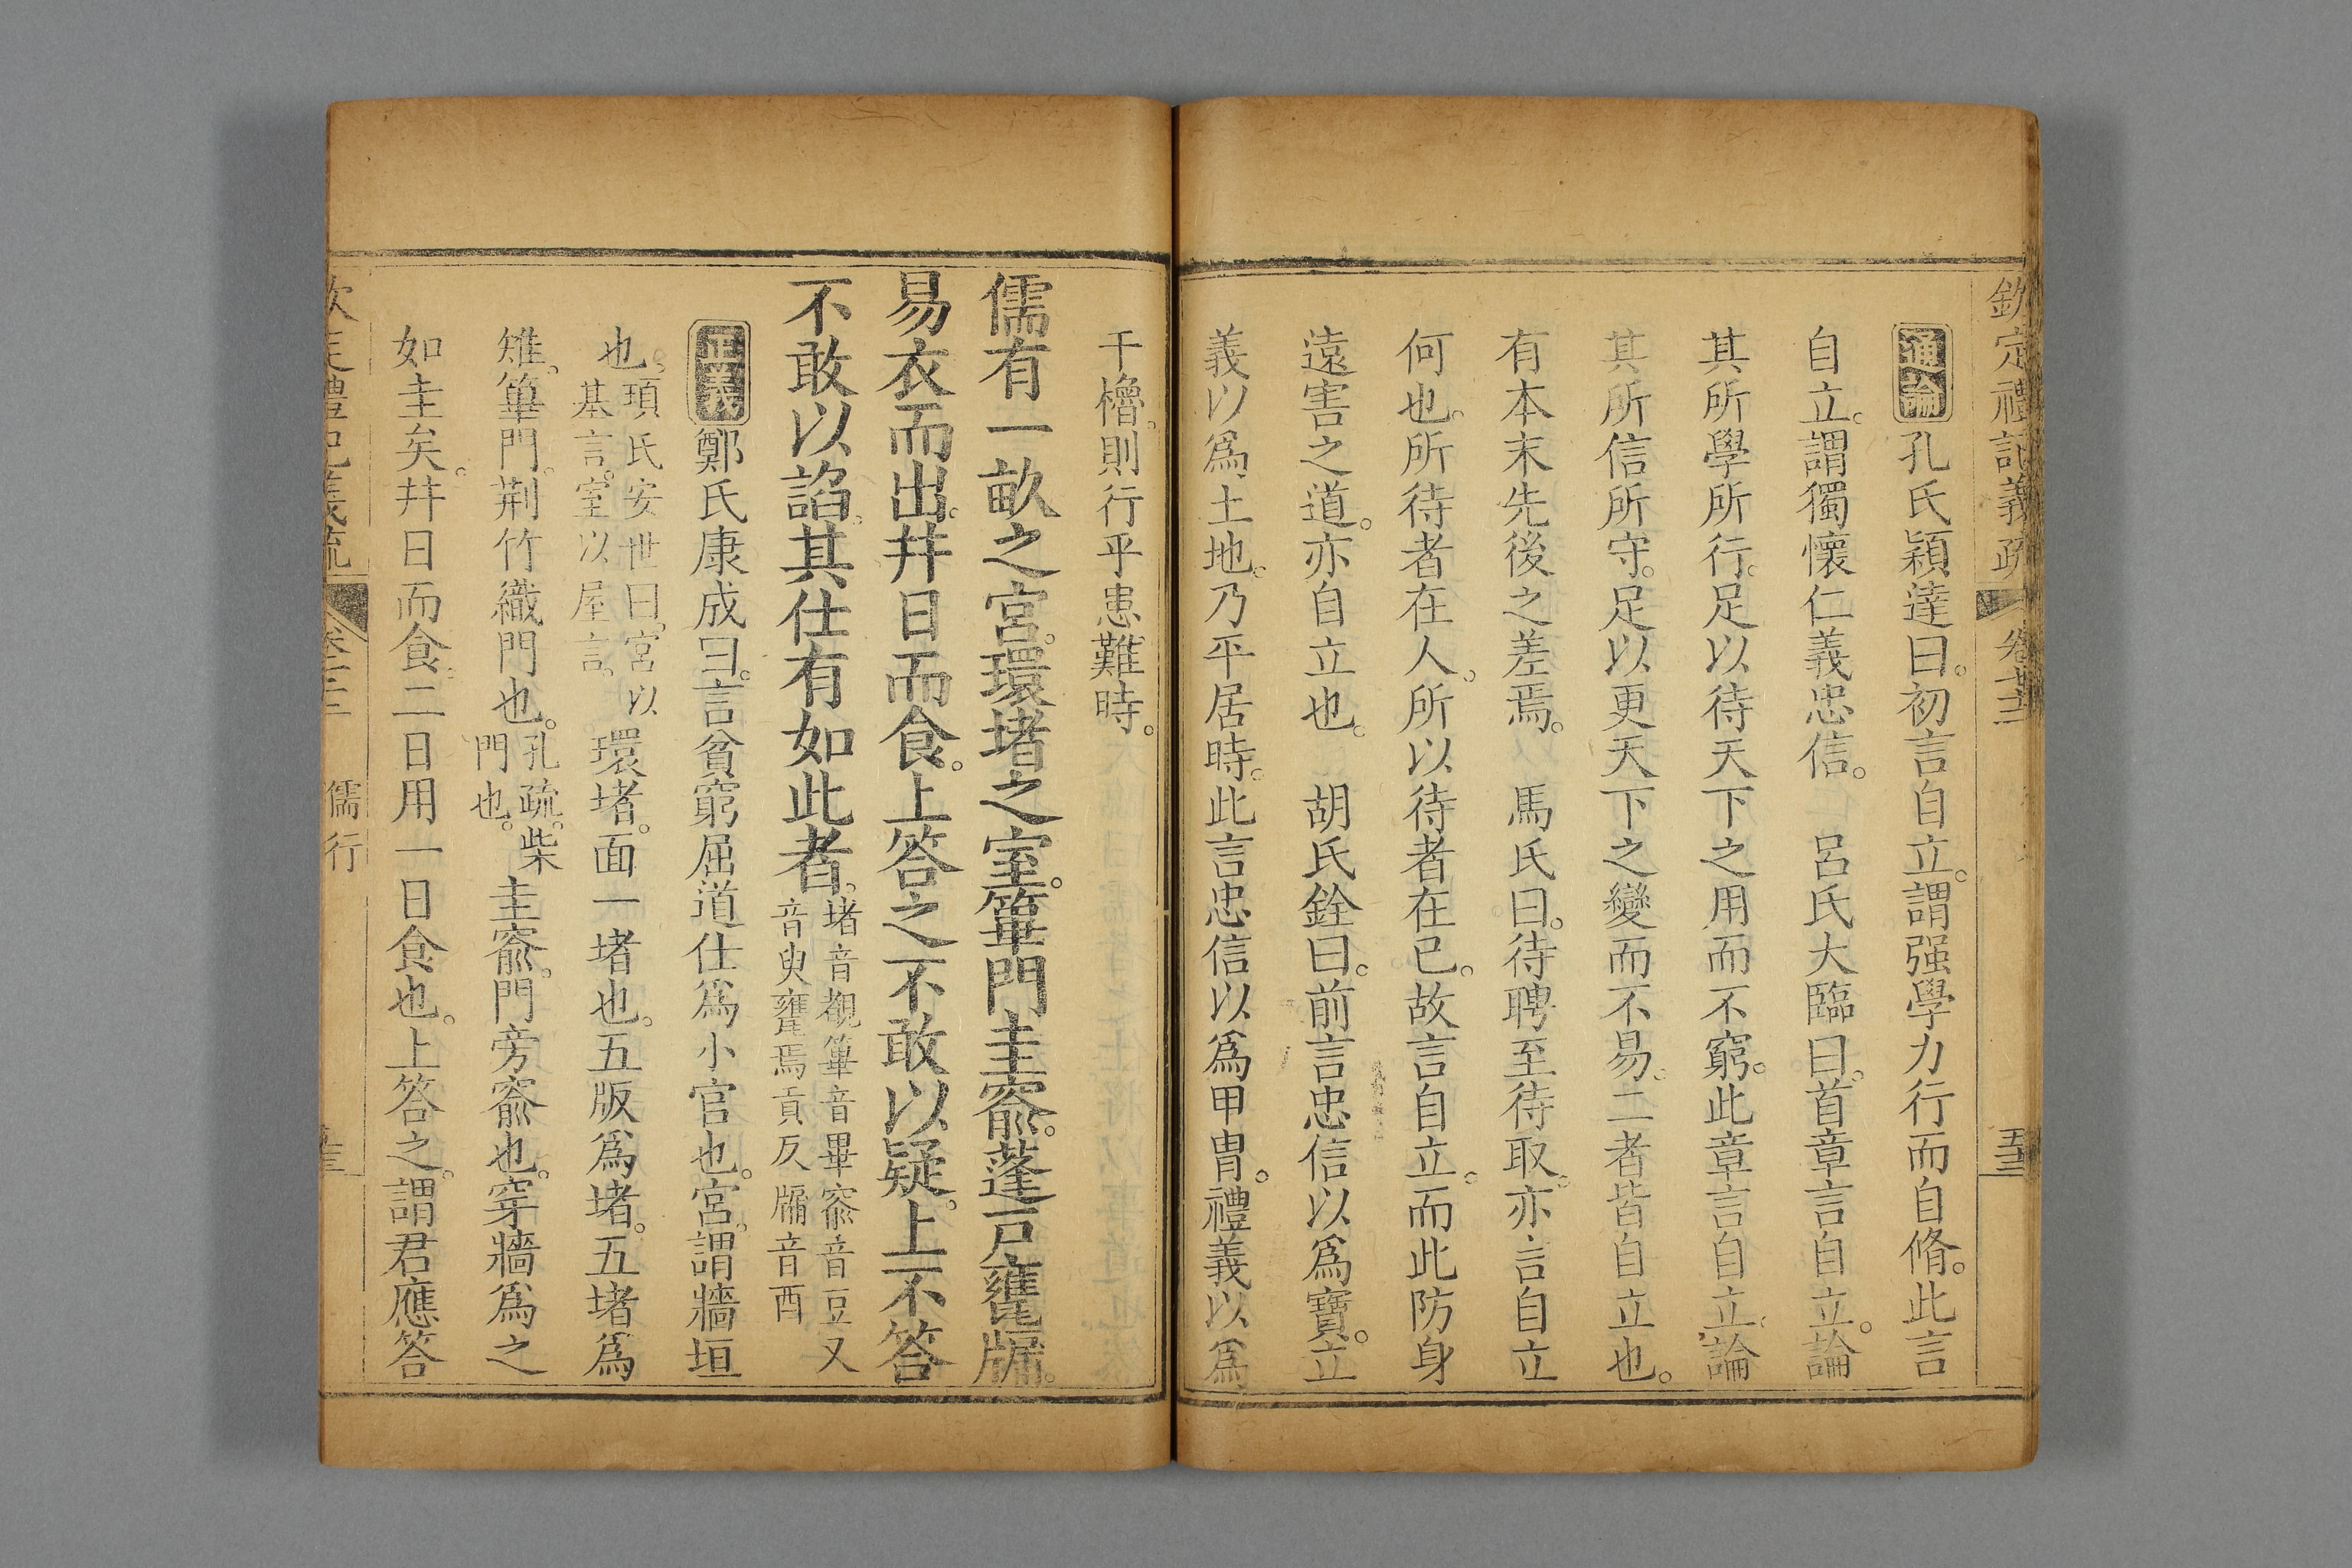 欽定禮記義疏 卷七十三 五十三
通論 孔氏穎達曰。初言自立。謂强學力行而自脩。此言
自立。謂獨懷仁義忠信。 呂氏大臨曰。首章言自立。論
其所學所行。足以待天下之用而不窮。此章言自立。論
其所信所守。足以更天下之變而不易。二者皆自立也。
有本末先後之差焉。 馬氏曰。待聘至待取。亦言自立
何也。所待者在人。所以待者在已。故言自立。而此防身
遠害之道。亦自立也。 胡氏銓曰。前言忠信以爲寶。立
義以爲土地。乃平居時。此言忠信以爲甲冑。禮義以爲
干櫓。則行乎患難時。
儒有一畝之宮。環堵之室。篳門圭窬。蓬戸甕牖。
易衣而出。幷日而食。上答之不敢以疑。上不答
不敢以諂。其仕有如此者。堵音覩篳音畢窬音豆又
音臾甕焉貢反牖音酉
正義 鄭氏康成曰。言貧窮屈道仕爲小官也。宮。謂牆垣
也。項氏安世曰。宮以
基言。室以屋言。環堵。面一堵也。五版爲堵。五堵爲
雉。篳門。荆竹織門也。孔疏。柴
門也。圭窬。門旁窬也。穿牆爲之
如圭矣。幷日而食。二日用一日食也。上答之。謂君應答
儒行